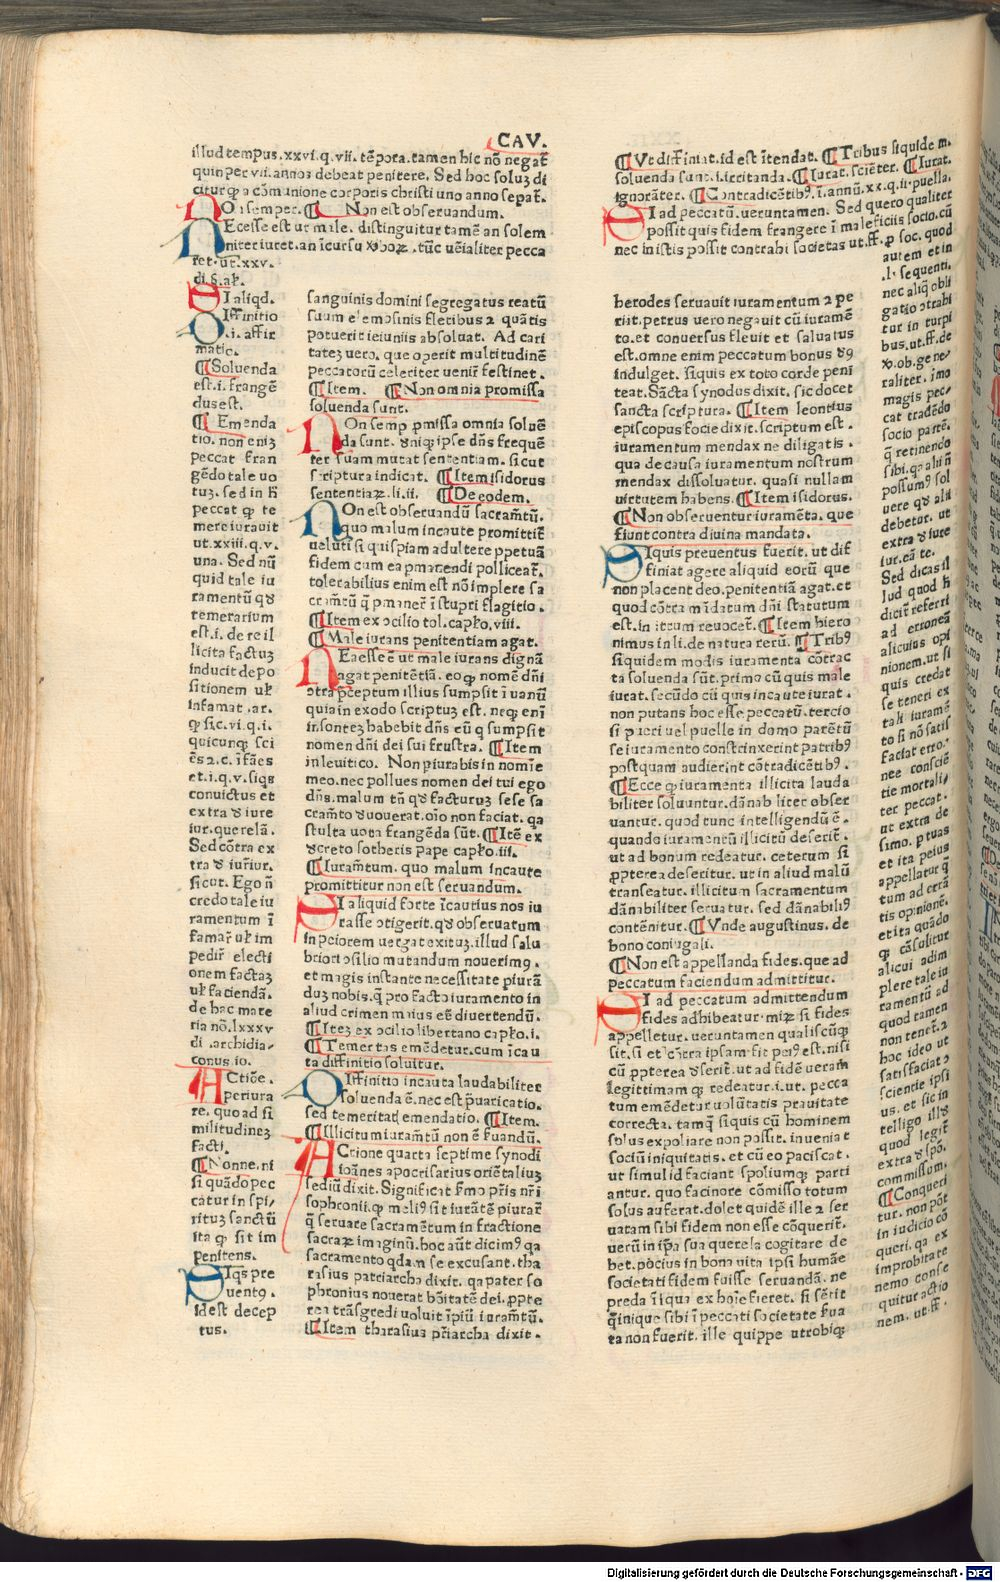 CAV.
illud tempus. xxvi. q. vii. tēpora. tamen hic nō negat᷑
quin per vii. annos debeat penitere. Sed hoc soluȝ di
citur ꝙ a cōmunione corporis christi uno anno separat᷑.
NOn semper. ¶ Non est obseruandum.
NEcesse est ut male. distinguitur tamē an solem
niter iuret. an ī cursu ꝟboꝝ. tūc uēialiter pecca
ret. ut. xxv.
di. §. al̵.
SI aliqd.
DIffinitio
.i. affir
matio.
¶ Soluenda
est. i. frangē
dus est.
¶ Emenda
tio. non eniȝ
peccat fran
gēdo tale uo
tuȝ. sed in ħ
peccat ꝙ te
mere iurauit
ut. xxiii. q. v.
una. Sed nū
quid tale iu
ramentū qđ
temerarium
est. i. de re il
licita factuȝ
inducit depo
sitionem ul̵
infamat. ar.
ꝙ sic. vi. q. i.
quicunqȝ sci
ēs 2. c. īfāes
et. i. q. v. siqs
conuictus et
extra đ iure
iur. querelā.
Sed cōtra ex
tra đ iur̄iur.
sicut. Ego ñ
credo tale iu
ramentum ī
famar̄ ul̵ im
pedir̄ electi
onem factaȝ
ul̵ faciendā.
de hac mate
ria nō. lxxxv
di. archidia-
conus. io.
ACtiōe.
periura
re. quo ad si
militudineȝ
facti.
¶ Nonne. ni
si quādo pec
catur in spi,
rituȝ sanctū
ita ꝙ sit im
penitens.
SIqs pre
uent9.
id est decep
tus.
sanguinis domini segregatus reatū
suum elemosinis fletibus 2 quātis
potuerit ieiuniis absoluat. Ad cari
tateȝ uero, que operit multitudinē
peccatorū celeriter uenir̄ festinet.
¶ Item. ¶ Non omnia promissa
soluenda sunt.
NOn semp ꝓmissa omnia soluē
da sunt. đniqȝ ipse dñs frequē
ter suam mutat sententiam. sicut
scriptura indicat. ¶ Item isidorus
sententiaꝝ. li. ii. ¶ De eodem.
NOn est obseruandū sacram̄tū.
quo malum incaute promittit᷑
ueluti si quispiam adultere ꝑpetuā
fidem cum ea ꝑmanendi polliceat᷑.
tolerabilius enim est nō implere sa
cram̄tū q̄ ꝑmaner̄ ī stupri flagitio.
¶ Item ex ɔcilio tol. capl̵o. viii.
¶ Male iurans penitentiam agat.
NEcesse ē ut male iurans dignā
agat penitētiā. eo ꝙ nomē dn̄i
ɔtra p̄ceptum illius sumpsit ī uanū
quia in exodo scriptuȝ est. neqȝ enī
insontez habebit dñs eū q sumpsit
nomen dn̄i dei sui frustra. ¶ Item
in leuitico. Non piurabis in nomīe
meo. nec pollues nomen dei tui ego
dn̄s. malum tn̄ qđ facturuȝ sese sa
cram̄to đuouerat. oīo non faciat. qa
stulta uota frangēda sūt. ¶ Itē ex
đcreto sotheris pape capl̵o. iii.
¶ Iuram̄tum. quo malum incaute
promittitur non est seruandum.
SI aliquid forte īcautius nos iu
rasse ɔtigerit. qđ obseruatum
in peiorem uergat exituȝ. illud salu
briori ɔsilio mutandum nouerim9.
et magis instante necessitate piurā
duȝ nobis. q̄ pro facto iuramento in
aliud crimen maius eē diuertendū.
¶ Iteȝ ex ɔcilio libertano capl̵o. i.
¶ Temeritas emēdetur. cum īcau
ta diffinitio soluitur.
DIffinitio incauta laudabiliter
soluenda ē. nec est p̄uaricatio.
sed temeritat᷑ emendatio. ¶ Item.
¶ Illicitum iuram̄tū non ē ẜuandū.
ACtione quarta septime synodi
ioānes apocrisarius oriētaliuȝ
sediū dixit. Significat ẜmo p̄ris nr̄i
sophronii. ꝙ meli9 sit iurātē piurar̄
q̄ seruare sacramētum in fractione
sacraꝝ imaginū. hoc aūt dicim9 qa
sacramento qdam se excusant. tha
rasius patriarcha dixit. qa pater so
phronius nouerat bōitatē dei. ꝓpte
rea trāsgredi uoluit īpiū iuram̄tū.
¶ Item tharasius p̄riarcha dixit.
¶ Vt diffiniat. id est ītendat. ¶ Tribus siquide m.
soluenda sunt. i. irritanda. ¶ Iurat. sciēter. ¶ Iurat.
ignorāter. ¶ Contradicētib9. ī. annū. xx. q. ii. puella.
SI ad peccatū. ueruntamen. Sed quero qualiter
possit quis fidem frangere ī maleficiis socio. cū
nec in istis possit contrahi societas ut. ff. ꝓ soc. quod
herodes seruauit iuramentum 2 pe
riit. petrus uero negauit cū iuramē
to. et conuersus fleuit et saluatus
est. omne enim peccatum bonus đ9
indulget. siquis ex toto corde peni
teat. Sācta synodus dixit. sic docet
sancta scriptura. ¶ Item leontius
episcopus focie dixit. scriptum est.
iuramentum mendax ne diligatis.
qua de causa iuramentum nostrum
mendax dissoluatur. quasi nullam
uirtutem habens. ¶ Item isidorus.
¶ Non obseruentur iuramēta. que
fiunt contra diuina mandata.
SIquis preuentus fuerit. ut dif
finiat agere aliquid eorū que
non placent deo. penitentiā agat. et
quod cōtra mādatum dn̄i statutum
est. in irritum reuocet᷑. ¶ Item hiero
nimus in li. de natura rerū. ¶ Trib9
siquidem modis iuramenta cōtrac
ta soluenda sūt. primo cū quis male
iurat. secūdo cū quis incaute iurat.
non putans hoc esse peccatū. tercio
si pueri uel puelle in domo parētū
se iuramento constrinxerint patrib9
postquam audierint cōtradicētib9.
¶ Ecce ꝙ iuramenta illicita lauda
biliter soluuntur. dānabiliter obser
uantur. quod tunc intelligendū ē.
quando iuramentū illicitū deserit᷑.
ut ad bonum redeatur. ceterum si
ꝓpterea deseritur. ut in aliud malū
transeatur. illicitum sacramentum
dānabiliter seruatur. sed dānabili9
contēnitur. ¶ Vnde augustinus. de
bono coniugali.
¶ Non est appellanda fides. que ad
peccatum faciendum admittitur.
SI ad peccatum admittendum
fides adhibeatur. miꝝ si fides
appelletur. ueruntamen qualiscūqȝ
sit. si et cōtra ipsam fit pei9 est. nisi
cū ꝓpterea đserit᷑. ut ad fidē ueram
legittimam qȝ redeatur. i. ut. pecca
tum emēdetur uolūtatis prauitate
correcta. tamqȝ siquis cū hominem
solus expoliare non possit. inueniat
sociū iniquitatis. et cū eo paciscat.
ut simul id faciant spoliumqȝ parti
antur. quo facinore cōmisso totum
solus auferat. dolet quidē ille 2 ser
uatam sibi fidem non esse cōquerit᷑.
uerū in ip̄a sua querela cogitare de
bet. pocius in bona uita ipsi humāe
societati fidem fuisse seruandā. ne
preda īiqua ex hoīe fieret. si sērit
q̄ inique sibi ī peccati societate ẜua
ta non fuerit. ille quippe utrobiqȝ
autem et in
.l. sequenti.
nec aliq̄ obli
gatio ɔtrahi
tur in turpi
bus. ut. ff. de
ꝟ. ob. gene/
raliter. imo
magis pec/
cat tradēdo
socio partē.
q̄ retinendo
sibi. qa ali ñ
possum9 sol
uere qđ alii
debetur. ut
extra đ iure
iur. eā te.
Sed dicas il
lud quod ħ
dicit᷑ referri
ad erroneā
alicuius opi
nionem. ut si
quis credat
se teneri ex
tali iuramē
to si nō satis
faciat erro.
nee consciē
tie mortali/
ter peccat.
ut extra de
simo. ꝑ tuas
et ita peius
appellatur q̄
tum ad errā
tis opinionē.
et ita quādo
qȝ cā soluitur
alicui adim
plere tale iu
ramentū ad
quod tamen
non tenet᷑. 2
hoc ideo ut
satisfaciat ɔ
scientie ipsi
us. et sic in
telligo illđ
quod legit᷑
extra đ spō.
commissum.
¶ Conqueri
tur. non pōt
in iudicio cō
queri. qa ex
improbitate
nemo conse
quitur actio
nem. ut. ff.
Digitalisierung gefördert durch die Deutsche Forschungsgemeinschaft - DFG